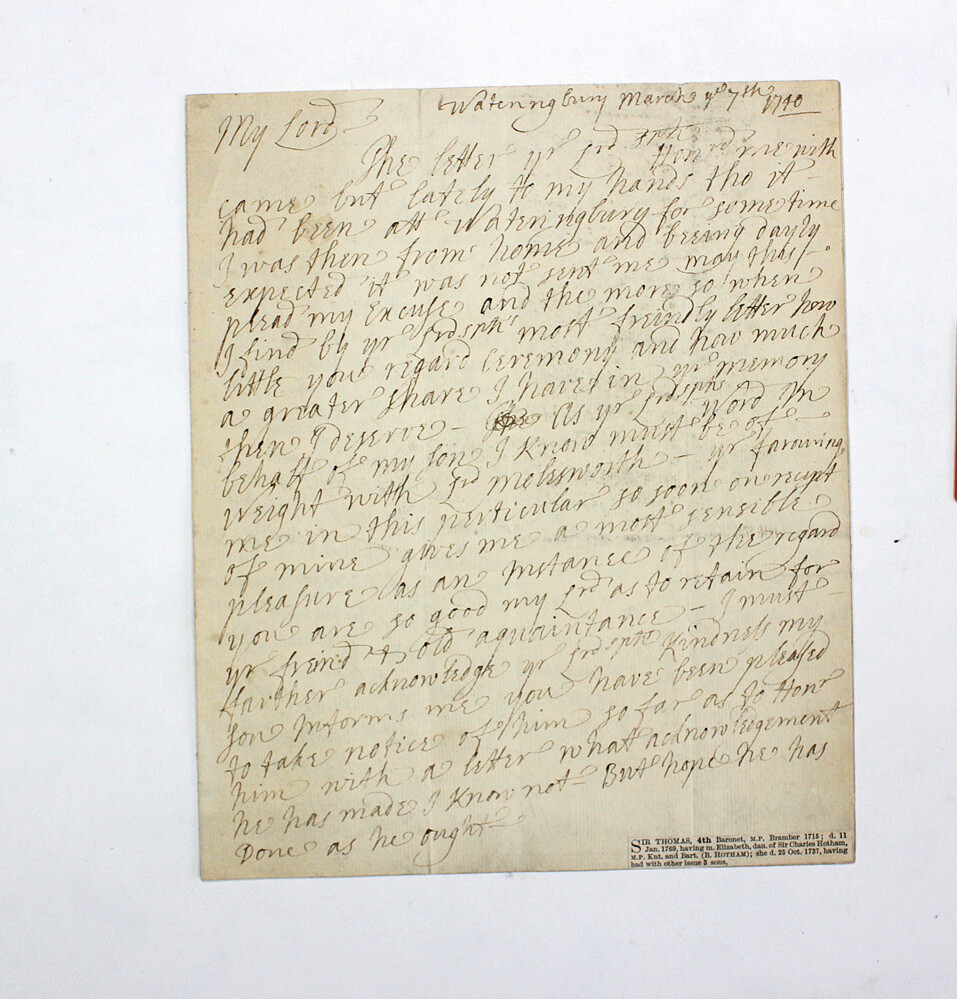 Wateringbury March ye 7th 1740
My Lord
The letter yr Lrdsph Honrd me with
came but lately to my hands tho it
had been att Wateringbury for some time
I was then from home and beeing dayly
expected it was not sent me may this
plead my Excuse and the more so when
I find by yr Lrdsph's most freindly letter how
little you regard Ceremony and how much
a greater share I have in yr memory
then I deserve - As yr Lrdsphs Word In
behalf of my son I Know must be of
weight with Lrd molesworth - yr favouring
me in this perticular so soon on recipt
of mine gives me a most sensible
pleasure as an Instance of the regard
you are so good my Lrd as to retain for
yr freind & old aquaintance - I must
farther acknowledge yr Lrdsphs Kindness my
son Informs me you have been pleased
to take notice of him so far as to Honr
him with a letter what acknowledgement
he has made I Know not - But hope he has
Done as he ought -
SIR THOMAS, 4th Baronet, M.P. Bramber 1715; d. 11
Jan. 1769, having m. Elizabeth, dau. of Sir Charles Hotham,
M.P. Knt. and Bart. (B. HOTHAM); she d. 25 Oct. 1737, having
had with other issue 3 sons,